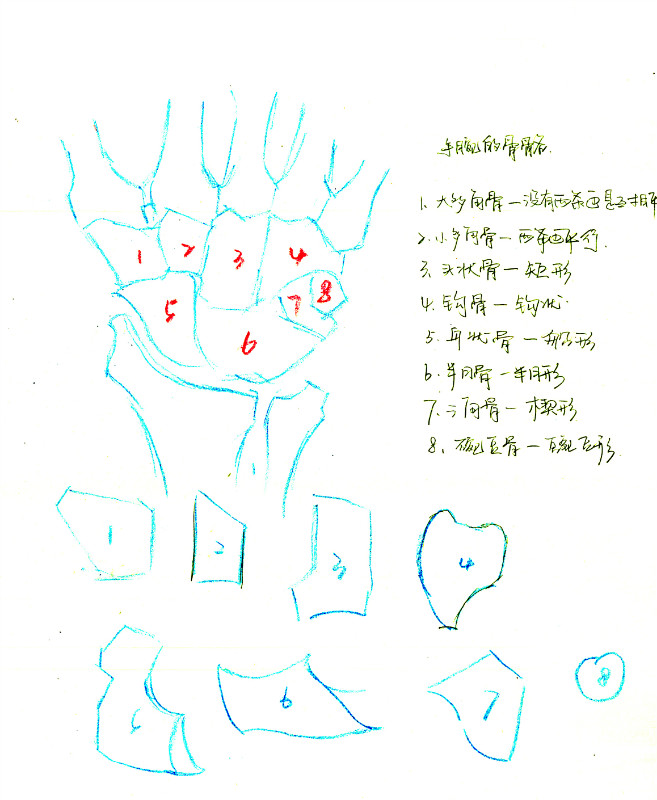 手腕的骨骼名
1 2 3 4
5 6 7 8
1. 大多角骨—没有两条画是互相平
2. 小多角骨—两条画平行.
3. 头状骨—矩形
4. 钩骨—钩状
5. 舟状骨—船形
6. 半月骨—半月形
7. 三角骨—楔形
8. 豌豆骨—豌豆形.
1 2 3 4
5 6 7 8